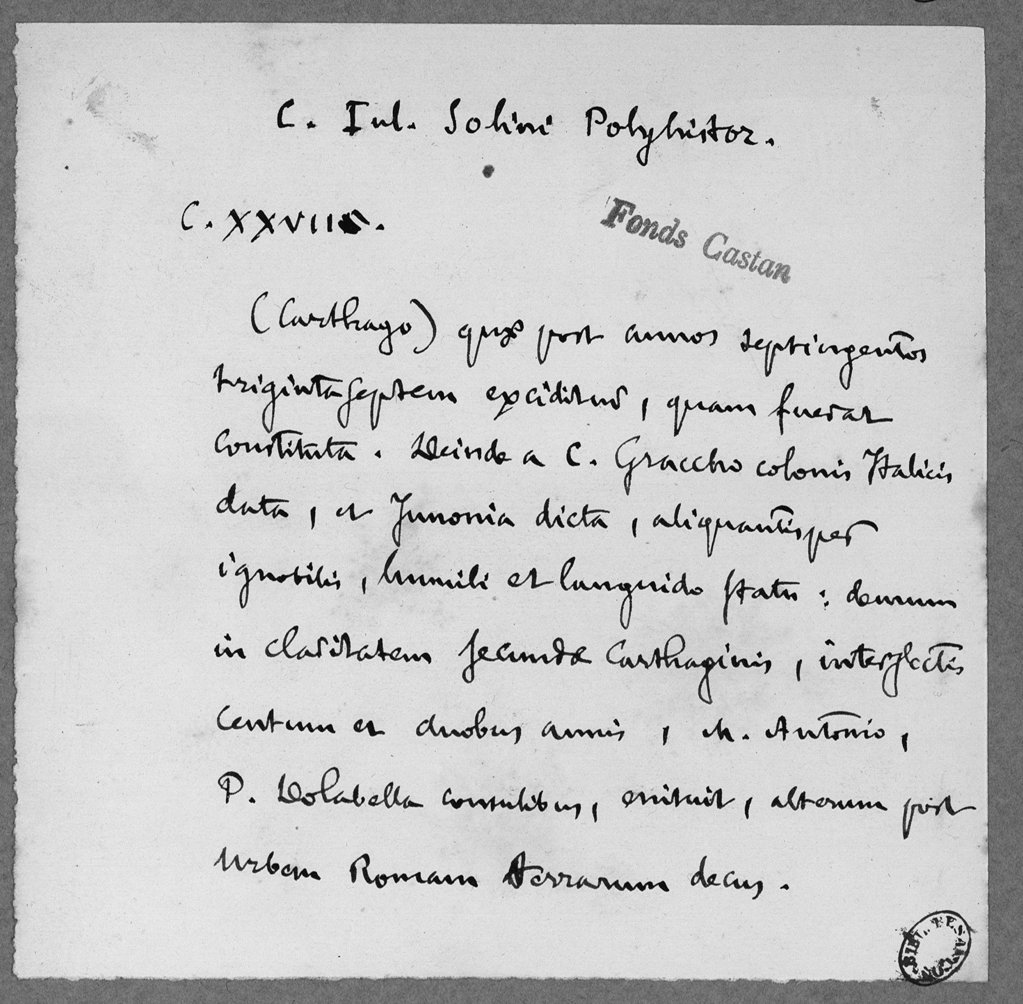 C. Iul. Solini Polyhistor.
C. XXVII.
Fonds Castan
(Carthago) quæ post annos septingentos
triginta septem exciditur, quam fuerat
constituta. Deinde a C. Graccho colonis Italicis
data, et Junonia dicta, aliquantisper
ignobilis, humili et languido statu : demum
in claritatem secundæ Carthaginis, interjectis
centum et duobus annis, M. Antonio,
P. Dolabella consulibus, enituit, alterum post
urbem Romam terrarum decus.
BIBL. BESANÇON